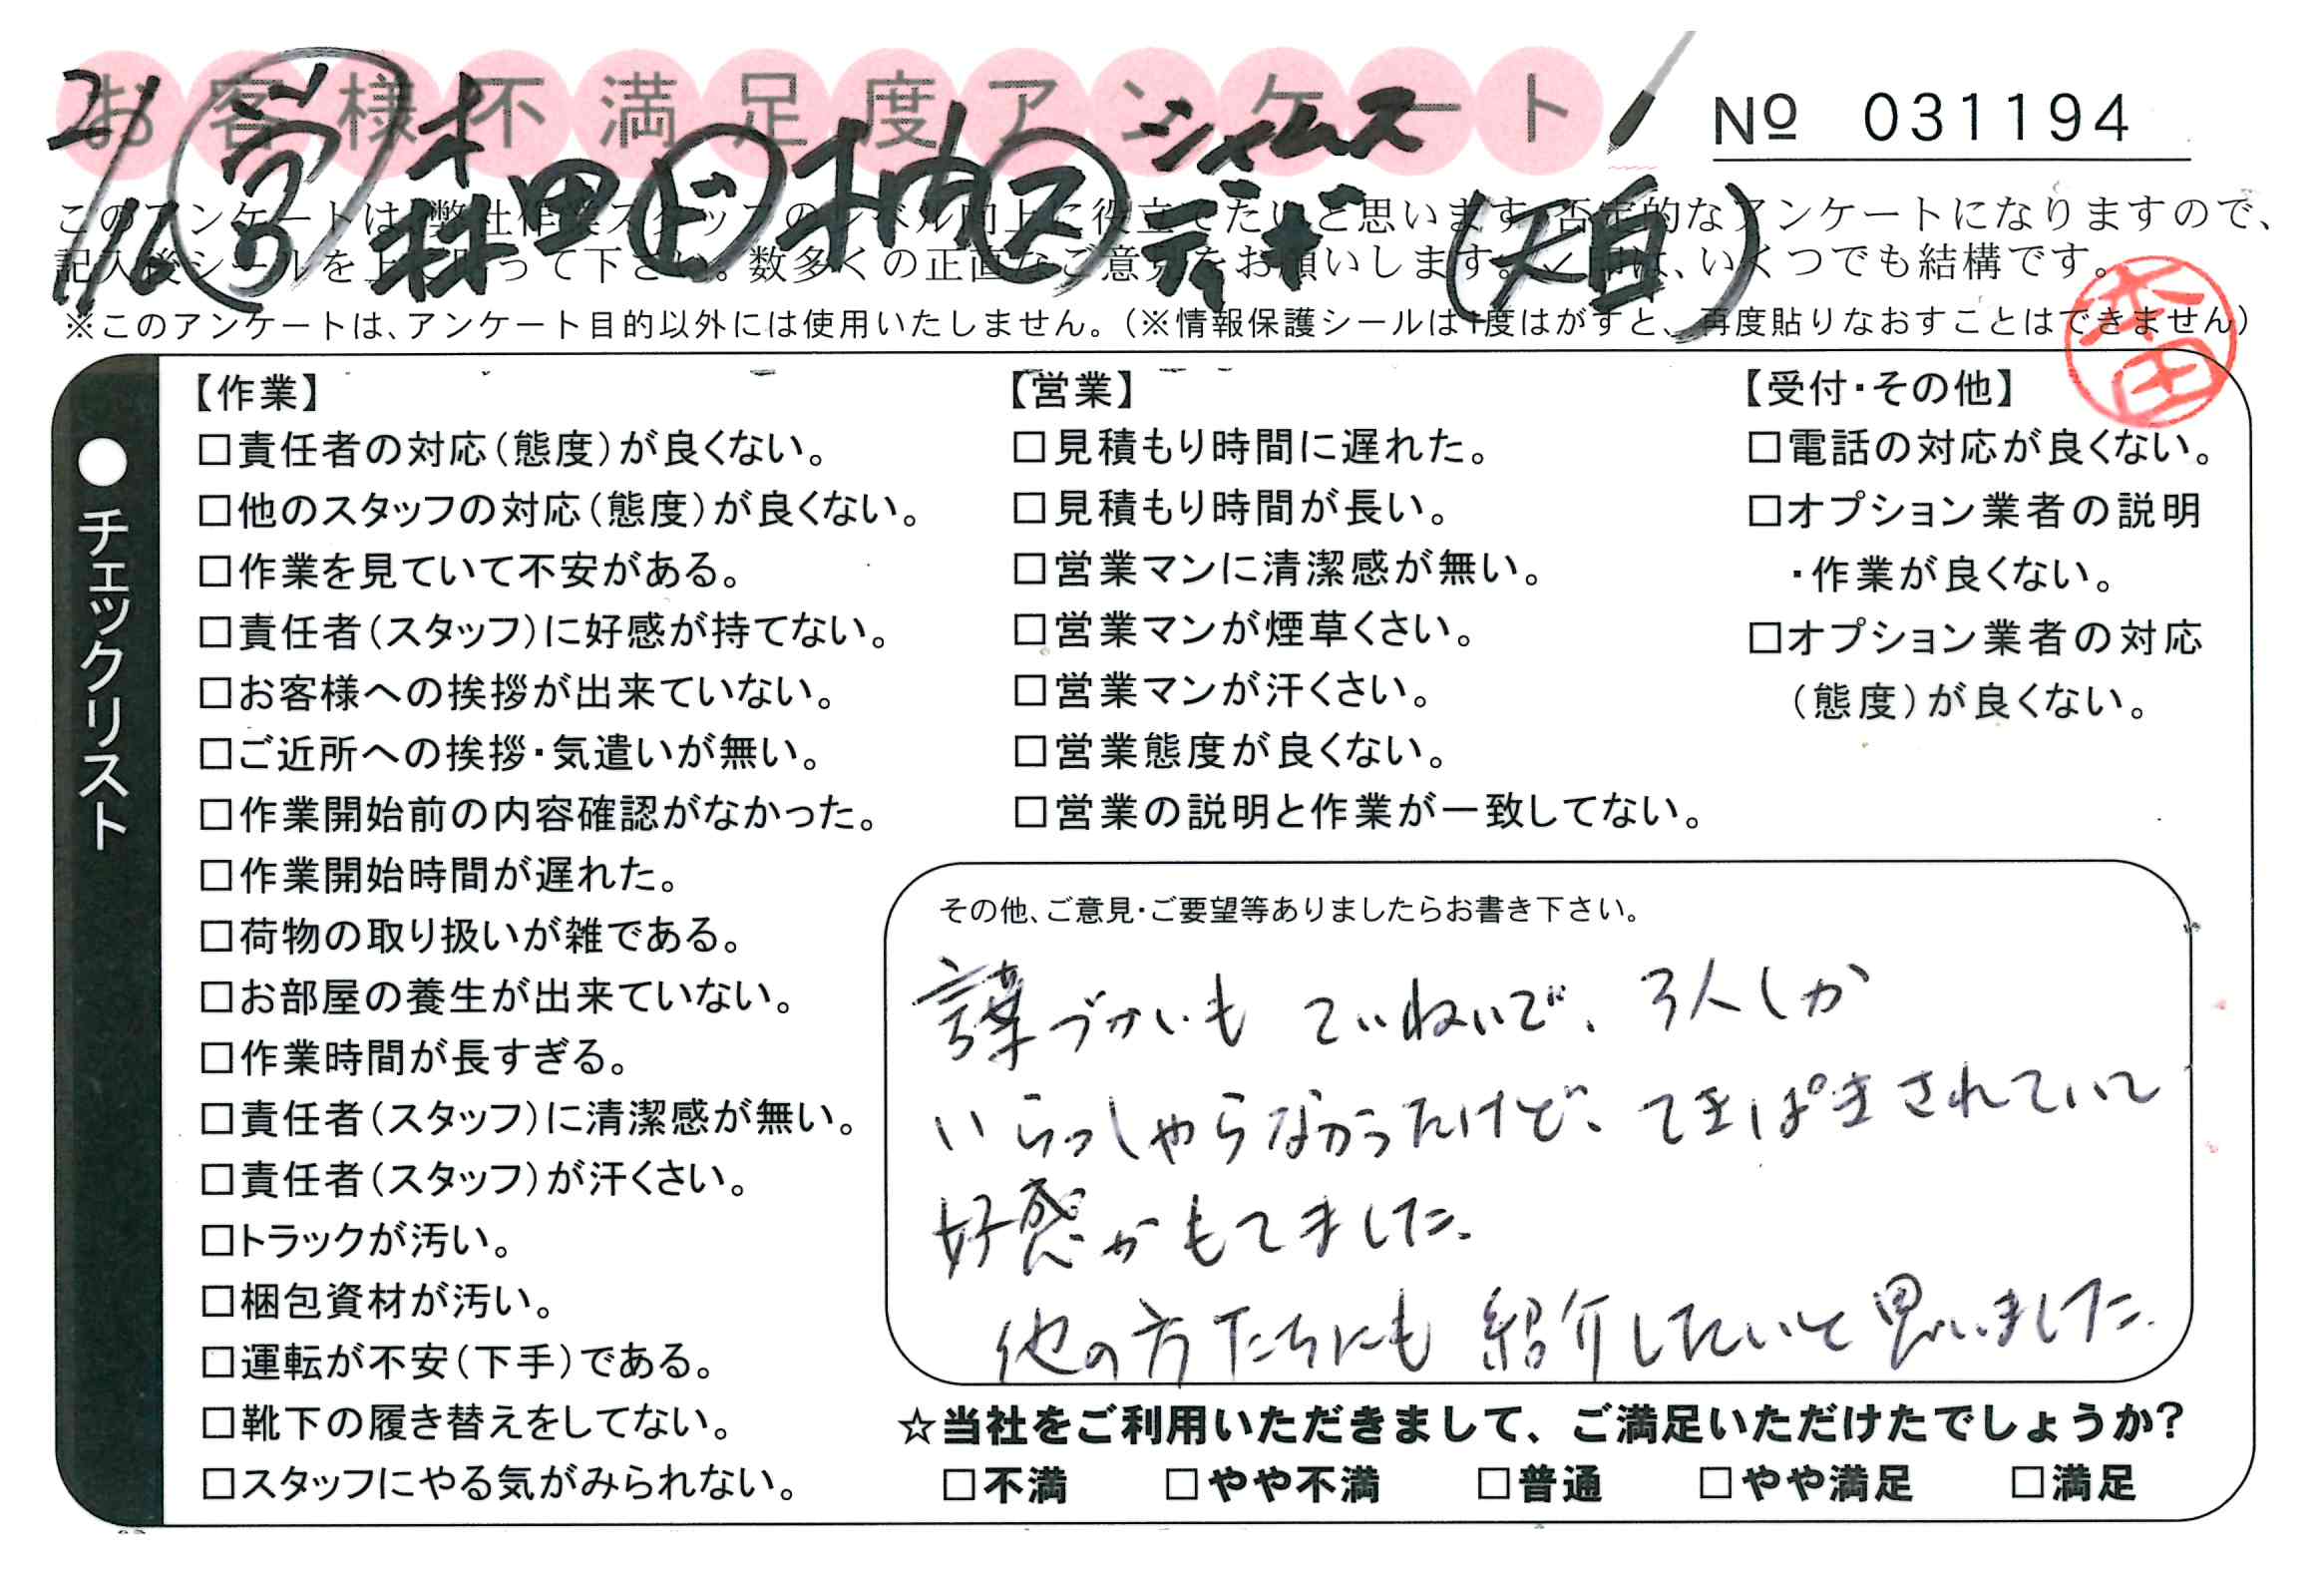 お客様不満足度アンケート
№ 031194
21/11/16
林田
シャムス
ディナ
(天白)
このアンケートは、弊社作業スタッフのレベル向上に役立てたいと思います。否定的なアンケートになりますので、
記入後シールを上に貼って下さい。数多くの正直なご意見をお願いします。✓印は、いくつでも結構です。
※このアンケートは、アンケート目的以外には使用いたしません。(※情報保護シールは1度はがすと、再度貼りなおすことはできません)
本田
●チェックリスト
【作業】
□責任者の対応(態度)が良くない。
□他のスタッフの対応(態度)が良くない。
□作業を見ていて不安がある。
□責任者(スタッフ)に好感が持てない。
□お客様への挨拶が出来ていない。
□ご近所への挨拶・気遣いが無い。
□作業開始前の内容確認がなかった。
□作業開始時間が遅れた。
□荷物の取り扱いが雑である。
□お部屋の養生が出来ていない。
□作業時間が長すぎる。
□責任者(スタッフ)に清潔感が無い。
□責任者(スタッフ)が汗くさい。
□トラックが汚い。
□梱包資材が汚い。
□運転が不安(下手)である。
□靴下の履き替えをしてない。
□スタッフにやる気がみられない。
【営業】
□見積もり時間に遅れた。
□見積もり時間が長い。
□営業マンに清潔感が無い。
□営業マンが煙草くさい。
□営業マンが汗くさい。
□営業態度が良くない。
□営業の説明と作業が一致してない。
【受付・その他】
□電話の対応が良くない。
□オプション業者の説明
・作業が良くない。
□オプション業者の対応
(態度)が良くない。
その他、ご意見・ご要望等ありましたらお書き下さい。
言葉づかいも ていねいで、3人しか
いらっしゃらなかったけど、てきぱきされていて
好感がもてました。
他の方たちにも 紹介したいと思いました。
☆当社をご利用いただきまして、ご満足いただけたでしょうか?
□不満 □やや不満 □普通 □やや満足 □満足